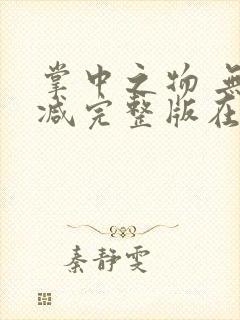 掌中之物 無
减完整版在
秦静雯